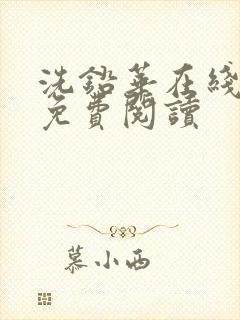 洗鉛華在綫
免費閱讀
慕小西